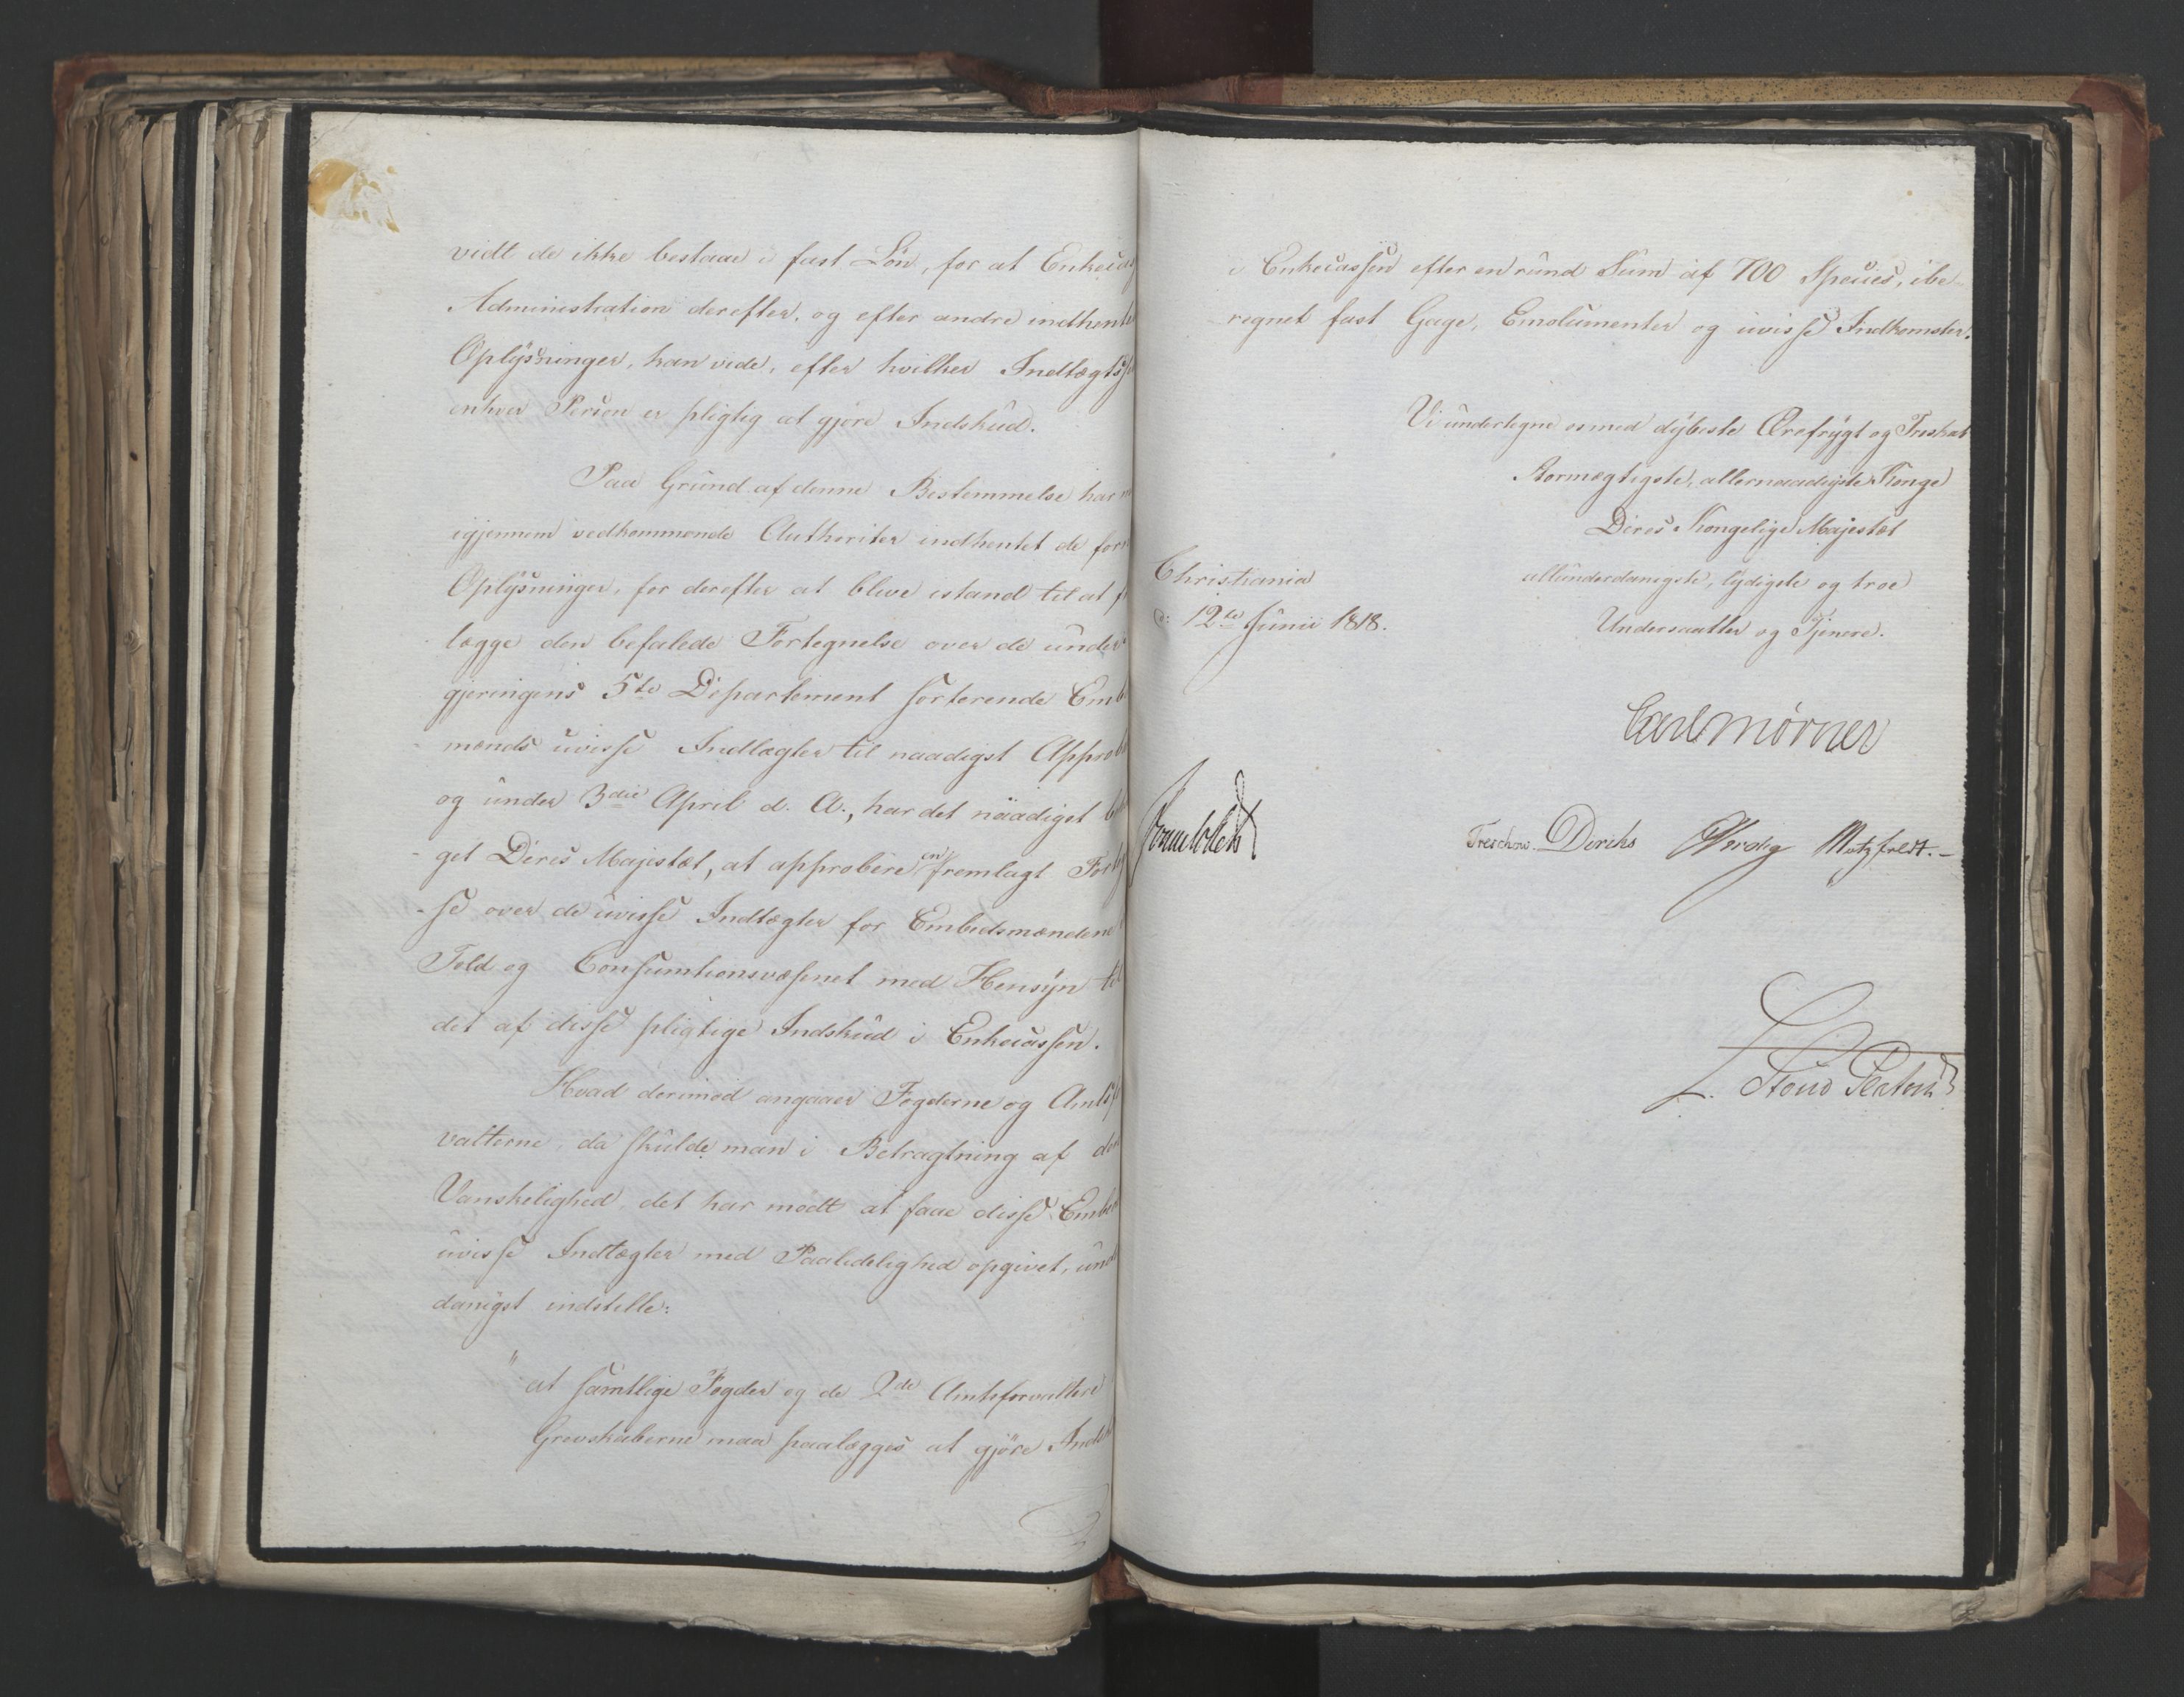 vidt de ikke bestaae i fast Løn, for at Enkecas
Administration derefter, og efter andre indhente
Oplysninger, kan vide, efter hvilken Indtægts
enhver Person er pligtig at gjøre Indskud.
Paa Grund af denne Bestemmelse har
igjennem vedkommende Authoriter indhentet de for
Oplysninger, for derefter at blive istand til at
lægge den befalede Fortegnelse over de under
gjeringens 5te Departement sorterende Emb
mænds uvisse Indtægter til naadigst Approb
og under 3die April d. A., har det naadigst
get Deres Majestæt, at approbere en fremlagt Forteg
-se over de uvisse Indtægter for Embedsmændene
Told og Consumtionsvæsenet med Hensyn til
det af disse pligtige Indskud i Enkecassen.
Hvad derimod angaaer Fogderne og Amtsf
valterne, da skulde man i Betragtning af den
Vanskelighed, det har mødt at faae disse Embe
uvisse Indtægter med Paalidelighed opgivet, und
danigst indstille:
"at samtlige Fogder og de 2de Amtsforvaltere
Grevskaberne maa paalægges at gjøre Indsk
i Enkecassen efter en rund Sum af 700 Species, ibe-
regnet fast Gage, Emolumenter og uvisse Indkomster.
Vi undertegne os med dybeste Ærefrygt og Troskab
Stormægtigste, allernaadigste Konge
Deres Kongelige Majestæt
allunderdanigste, lydigste og troe
Undersaatter og Tjenere.
Christiania
d: 12te Junii 1818.
Carl Mörner
Sommerhielm
Treschow. Diriks Hverdig Motzfeldt.-
L. Stoud Platou